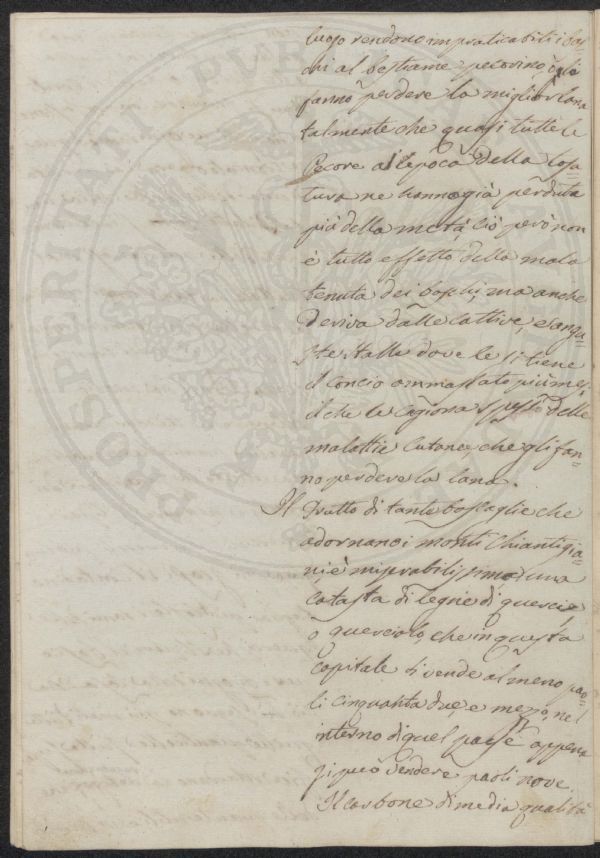 luogo rendono impraticabili i bos-
chi al bestiame pecorino, e gli
fanno perdere la miglior lana
talmente che quasi tutte le
Pecore all'epoca della tosa-
tura ne hanno già perduta
più della metà, ciò però non
è tutto effetto della mala
tenuta dei boschi, ma anche
deriva dalle cattive, e angu-
ste stalle dove le si tiene
il concio ammassato più mesi
il che le cagiona spesso delle
malattie cutanee, che gli fan-
no perdere la lana.
Il Frutto di tante boscaglie che
adornano i monti Chiantigia-
ni, è miserabilissimo; una
catasta di legne di quercie,
o querciolo, che in questa
capitale si vende almeno pao-
li cinquanta due, e mezzo, nel
interno di quel paese appena
si può vendere paoli nove.
Il carbone di media qualità
PROSPERITATI PVBLICAE